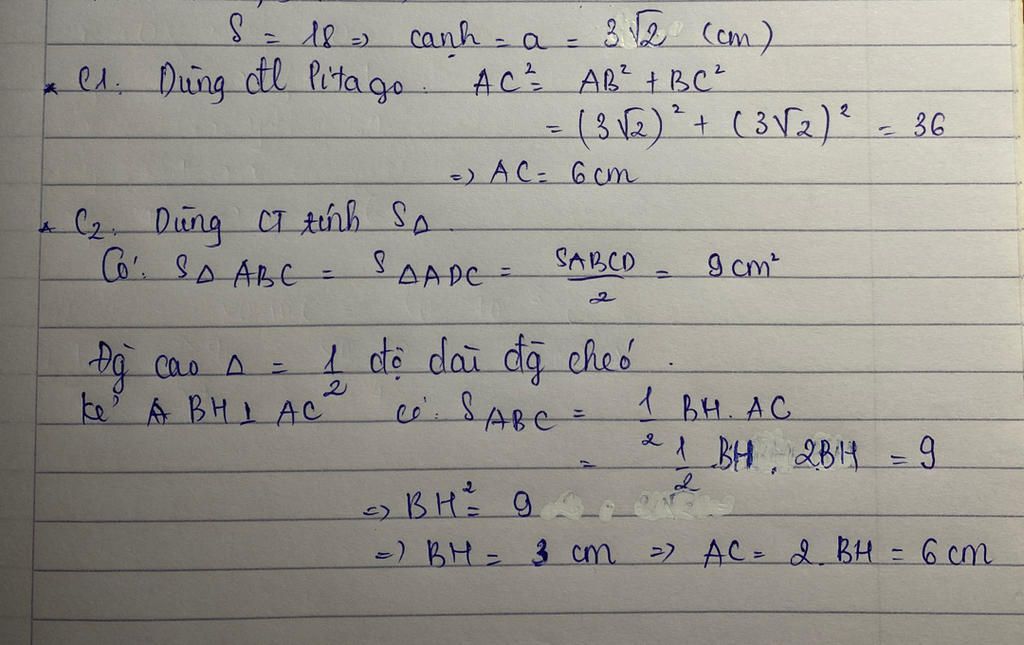 S = 18 => cạnh = a = 3√2 (cm)
* C1: Dùng đtl Pitago. AC² = AB² + BC²
= (3√2)² + (3√2)² = 36
=> AC = 6 cm
* C2. Dùng CT tính SΔ.
Có: SΔABC = SΔADC = SABCD/2 = 9 cm²
Đg cao Δ = 1/2 độ dài đg chéo.
kẻ BH ⊥ AC có: SABC = 1/2 BH. AC
= 1/2 BH. 2BH = 9
=> BH² = 9
=> BH = 3 cm => AC = 2. BH = 6 cm